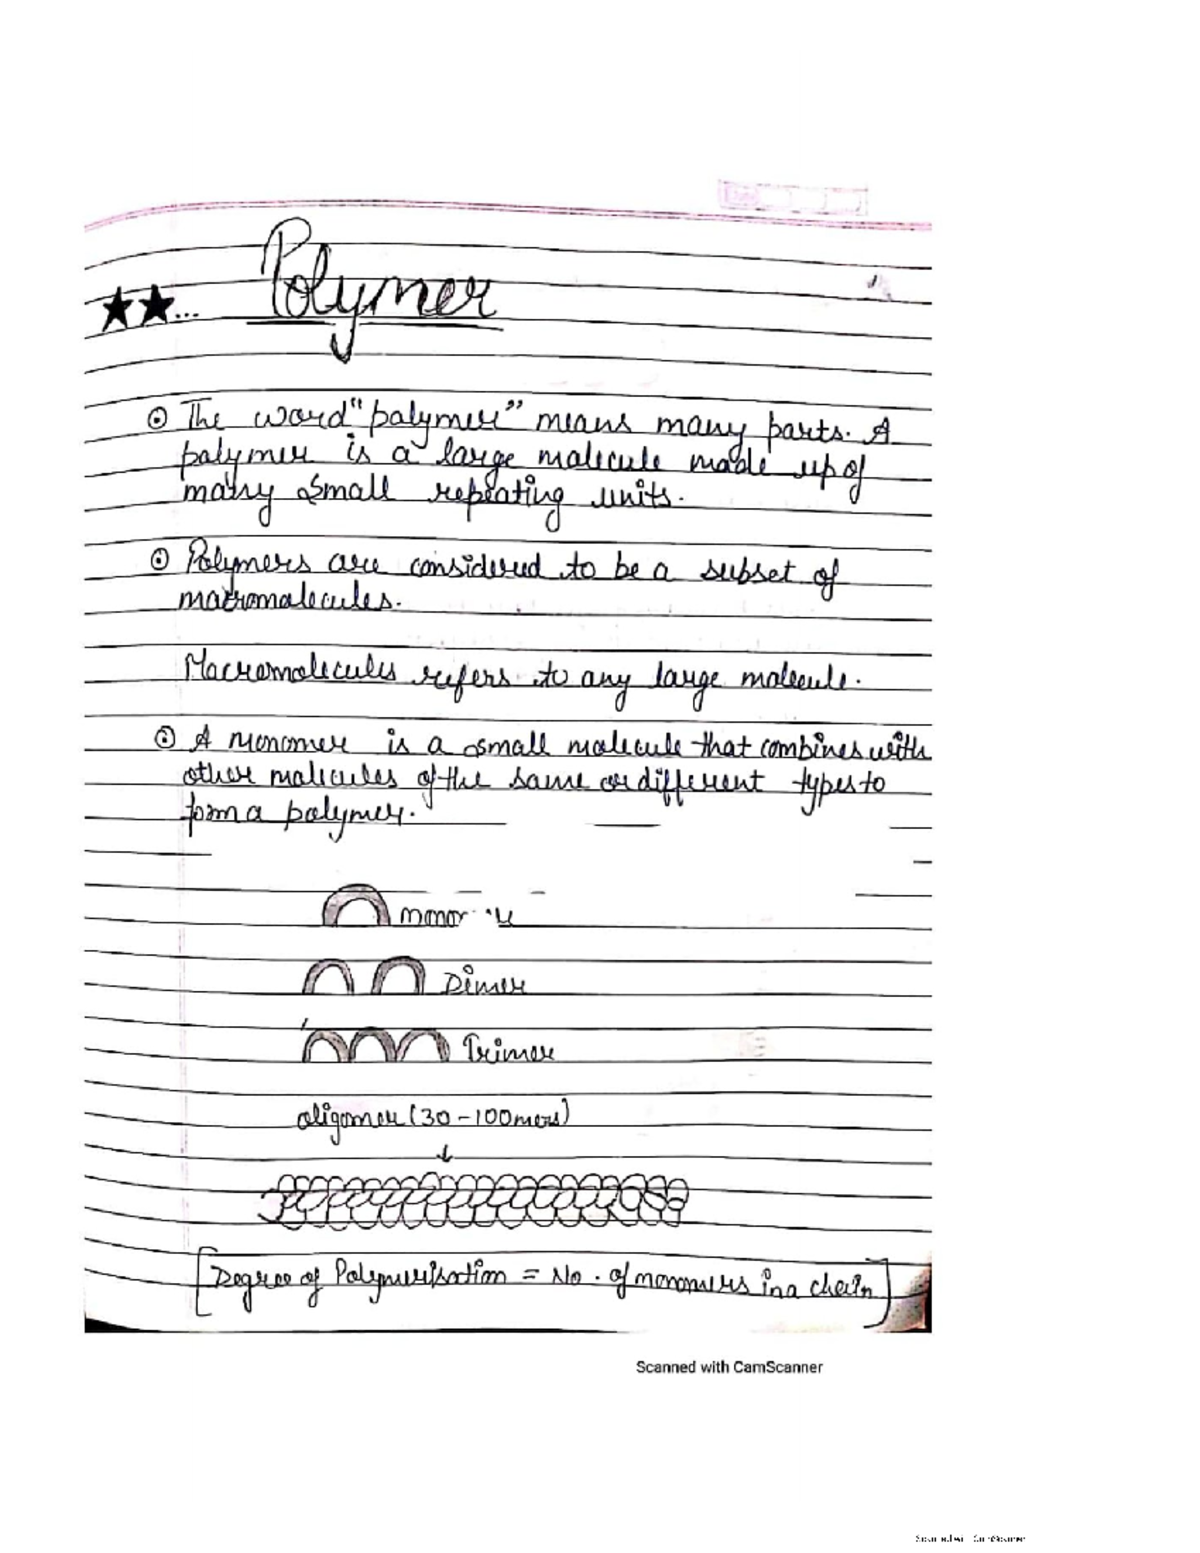 ★★... Polymer
⊙ The word "polymer" means many parts. A
polymer is a large molecule made up of
many small repeating units.
⊙ Polymers are considered to be a subset of
macromolecules.
Macromolecules refers to any large molecule.
⊙ A monomer is a small molecule that combines with
other molecules of the same or different types to
form a polymer.
Dimer
Trimer
oligomer (30-100mers)
↓
[Degree of Polymerisation = No. of monomers in a chain]
Scanned with CamScanner